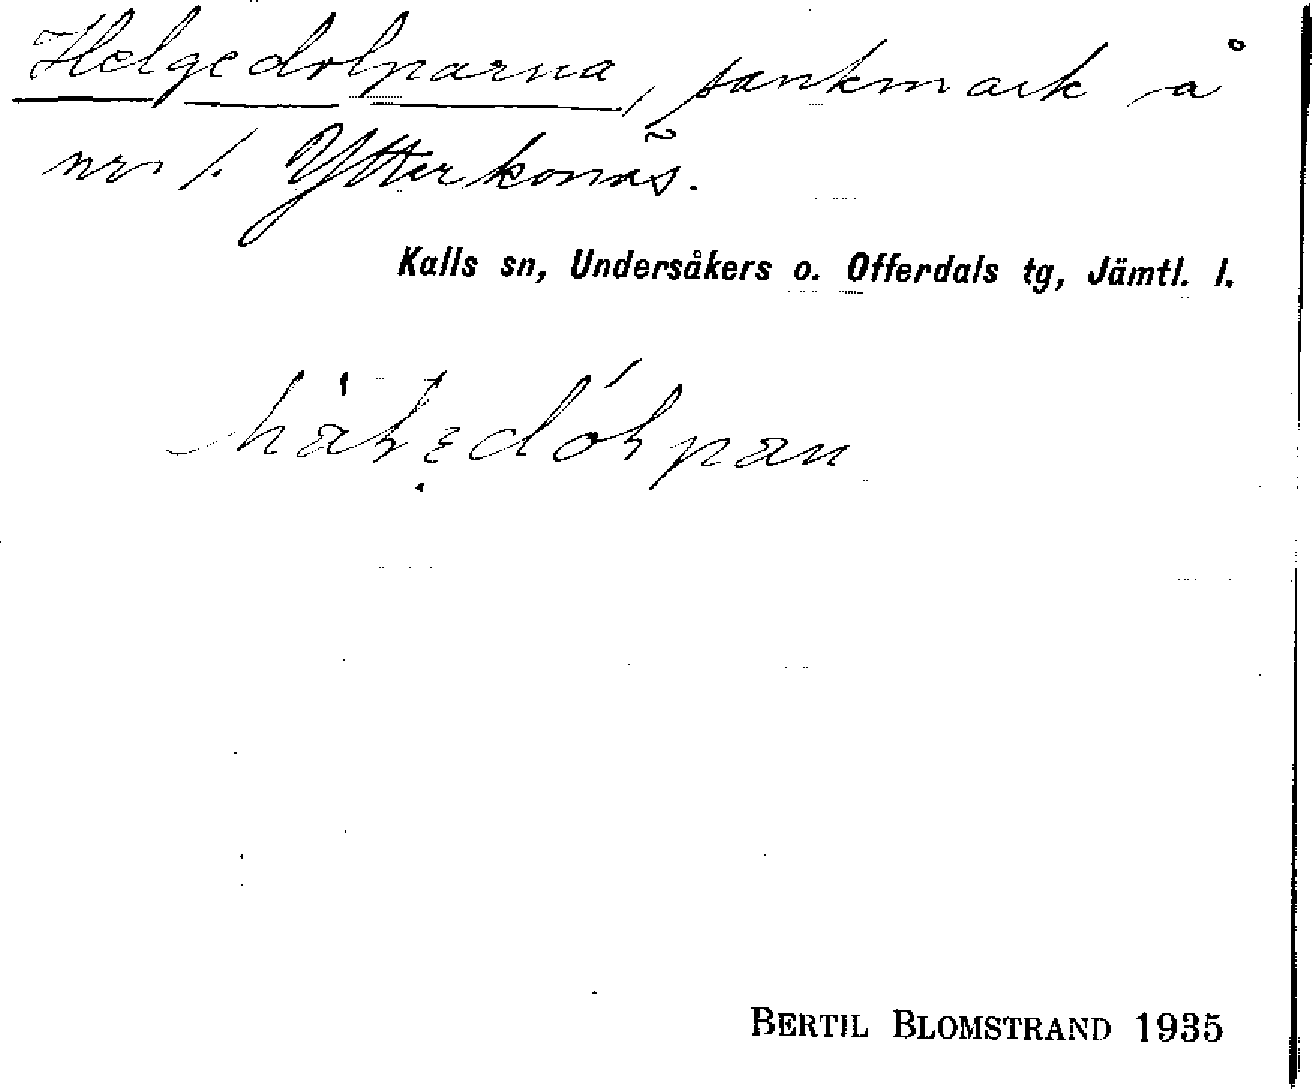 Helgedolparna, sankmark å
nr 1. Ytterkonäs.
Kalls sn, Undersåkers o. Offerdals tg, Jämtl. l.
BERTIL BLOMSTRAND 1935